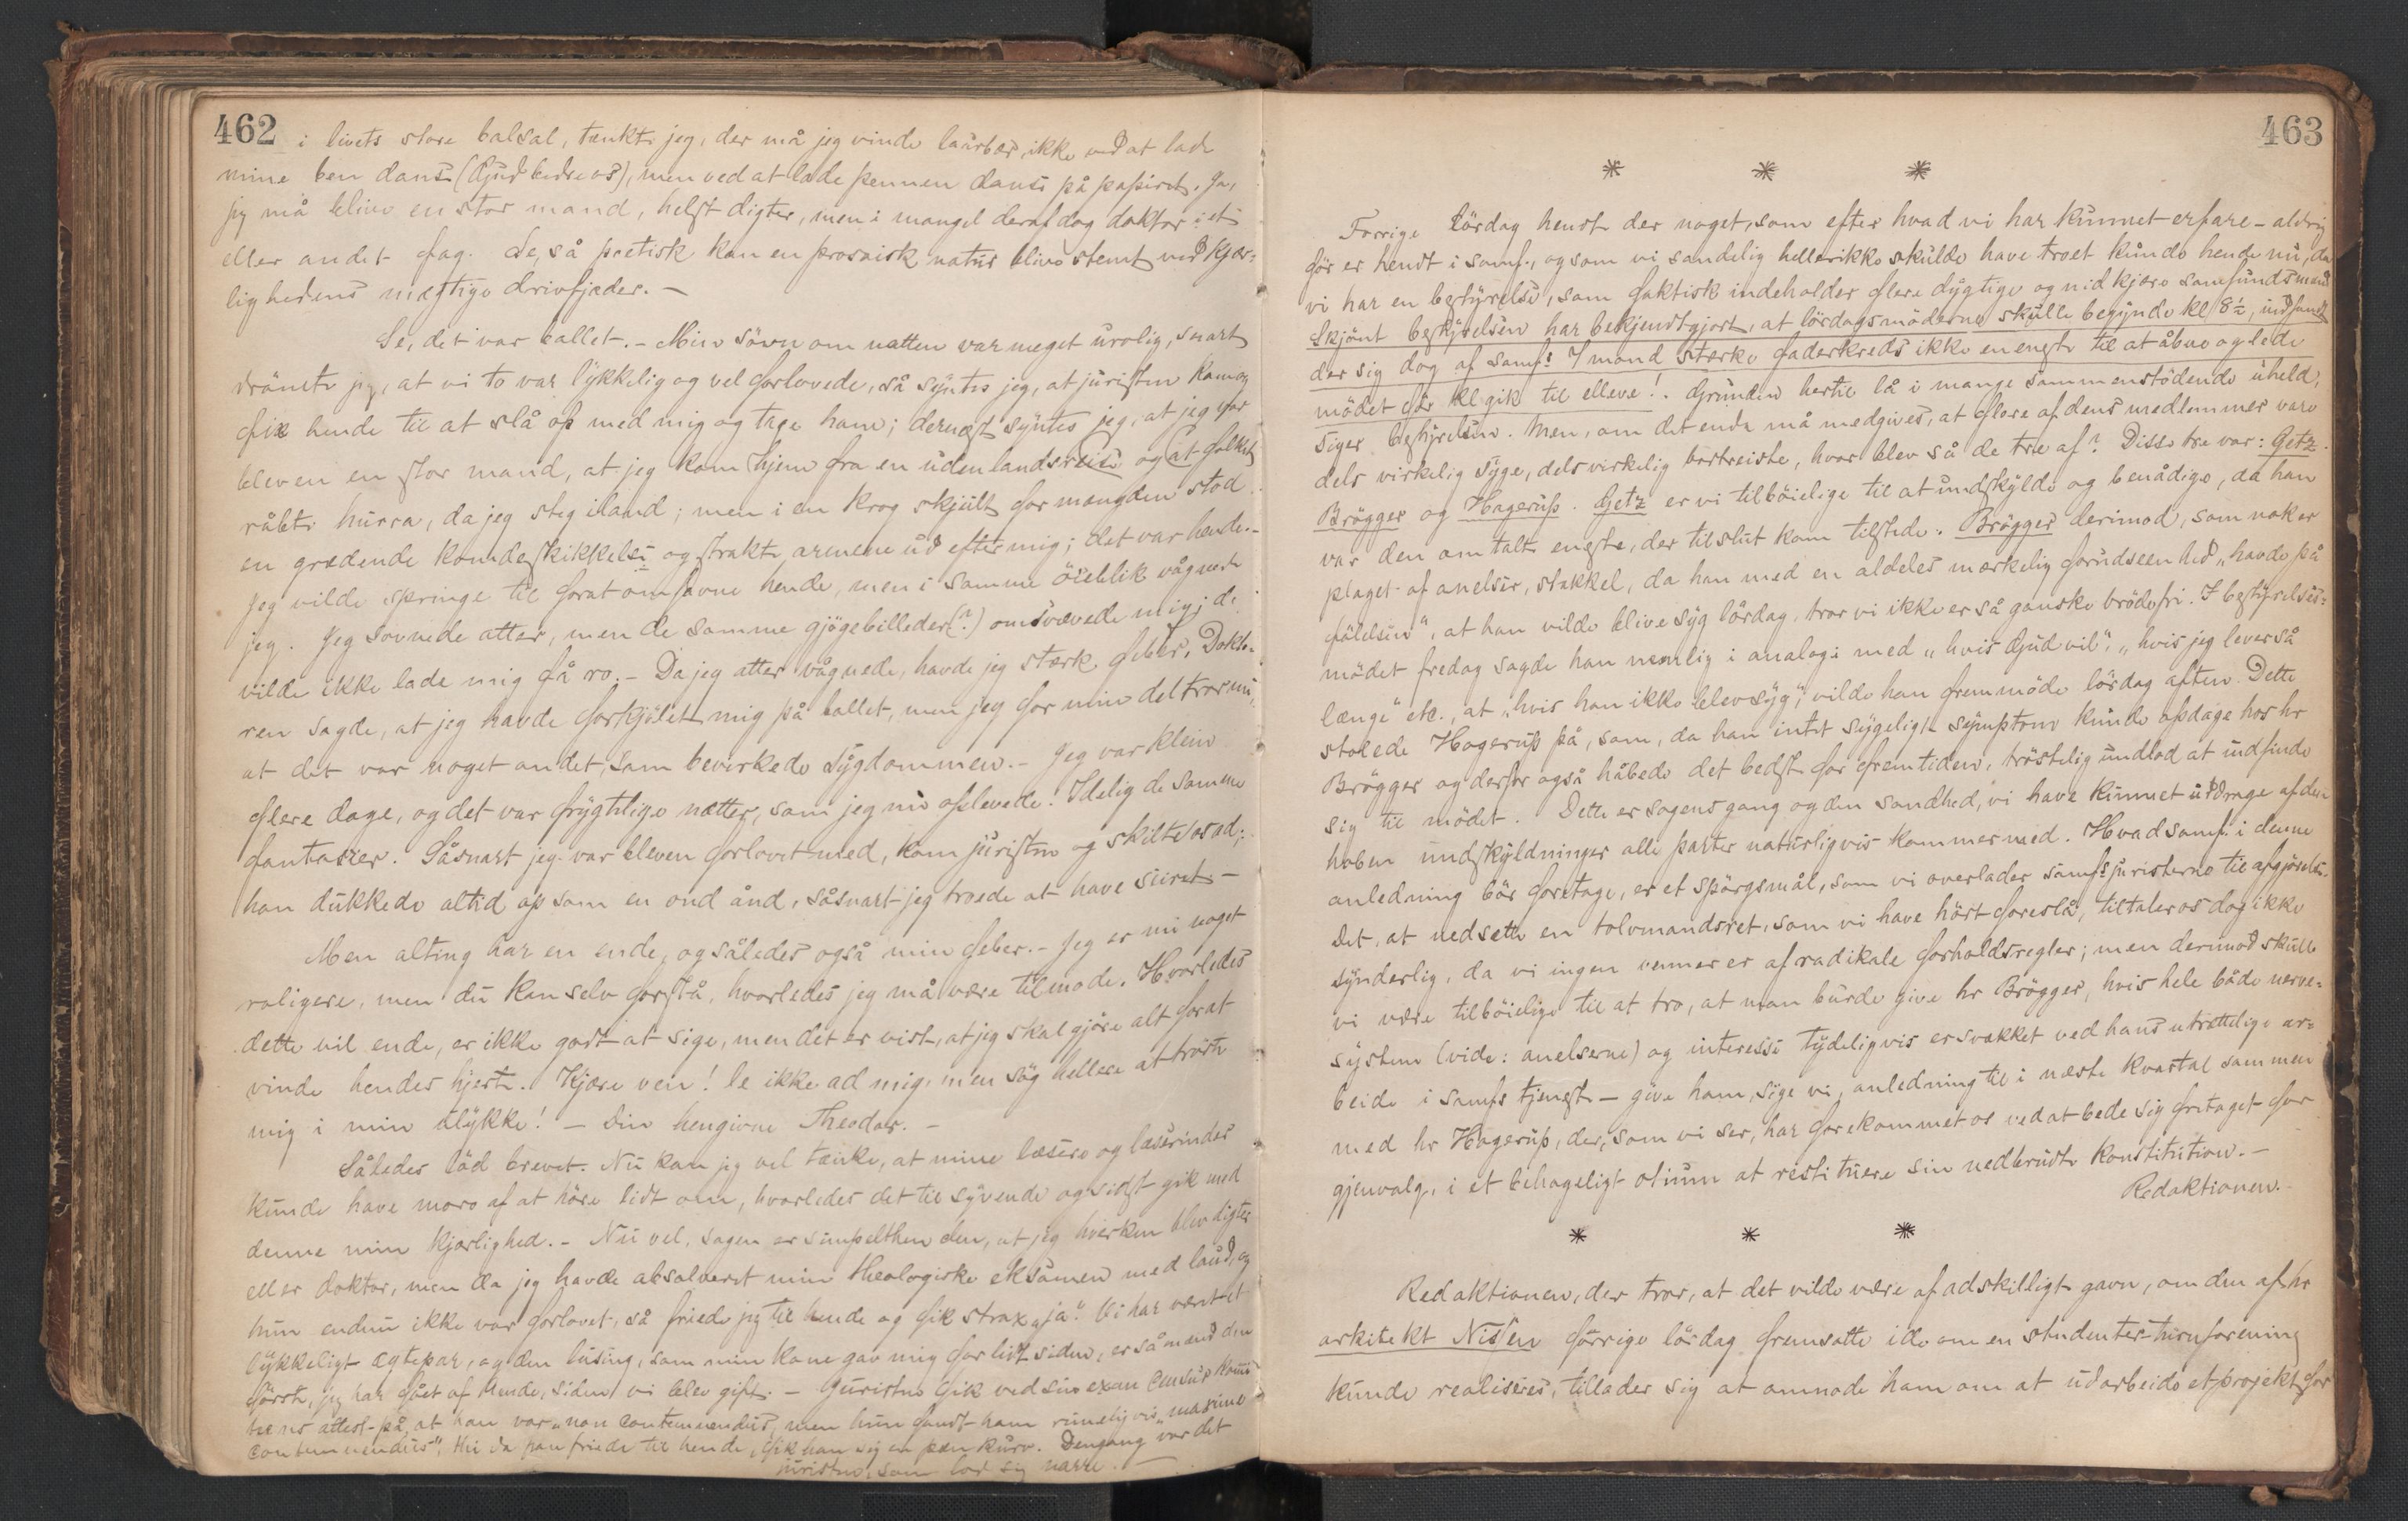 462
i livets store balsal, tænkte jeg, der må jeg vinde laurbær, ikke ved at lade
mine ben danse (Gjud bedre os), men ved at lade pennen danse på papiret. Ja,
jeg må blive en stor mand, helst digter, men i mangel deraf dog doktor i et
eller andet fag. Se, så poetisk kan en prosaisk natur blive stemt ved kjær-
lighedens mægtige drivfjæder. —
Se, det var ballet. - Min sövn om natten var meget urolig, snart
drömte jeg, at vi to var lykkelig og vel forlovede, så syntes jeg, at juristen kom og
fik hende til at slå op med mig og tage ham; dernæst syntes jeg, at jeg var
bleven en stor mand, at jeg kom hjem fra en udenlandsreise og at folket
råbte hurra, da jeg steg iland; men i en krog skjult for mængden stod
en grædende kvindeskikkelse og strakte armene ud efter mig; det var hende. -
Jeg vilde springe til forat omfavne hende, men i samme öieblik vågnede
jeg. Jeg sovnede atter, men de samme gjögebilleder (?) omsvævede mig; de
vilde ikke lade mig få ro. - Da jeg atter vågnede, havde jeg stærk feber. Dokto-
ren sagde, at jeg havde forkjölet mig på ballet, men jeg for min del tror nu,
at det var noget andet, som bevirkede sygdommen. - Jeg var klein
flere dage, og det var frygtelige nætter, som jeg nu oplevede. Idelig de samme
fantasier. Såsnart jeg var bleven forlovet med, kom juristen og skilte os ad;
han dukkede altid op som en ond ånd, såsnart jeg troede at have seiret. -
Men alting har en ende, og således også min feber. - Jeg er nu noget
roligere, men du kan selv forstå, hvorledes jeg må være tilmode. Hvorledes
dette vil ende, er ikke godt at sige, men det er vist, at jeg skal gjöre alt forat
vinde hendes hjerte. Kjære ven! le ikke ad mig, men søg hellere at tröste
mig i min ulykke! - Din hengivne Theodor. -
Således löd brevet. Nu kan jeg vel tænke, at mine læsere og læserinder
kunde have moro af at höre lidt om, hvorledes det til syvende og sidst gik med
denne min kjærlighed. - Nu vel, sagen er simpelthen den, at jeg hverken blev digter
eller doktor, men da jeg havde absolveret min theologiske eksamen med laud, og
hun endnu ikke var forlovet, så friede jeg til hende og fik strax „ja". Vi har været et
lykkeligt ægtepar, og den lusing, som min kone gav mig for lidt siden, er såmænd den
förste, jeg har fået af hende, siden vi blev gift. - Juristen fik ved sin exam
attest på, at han var „non contemnendus", men hun fandt ham rimeligvis „maxime
contemnendus". Thi da han friede til hende, fik han sig en pæn kurv. Dengang var det
juristen, som lod sig narre. —
463
* * *
Forrige lördag hendte der noget, som efter hvad vi har kunnet erfare - aldrig
för er hendt i samf., og som vi sandelig hellerikke skulde have troet kunde hende nu, da
vi har en bestyrelse, som faktisk indeholder flere dygtige og nidkjære samfundsmænd
Skjönt bestyrelsen har bekjendtgjort, at lördagsmöderne skulle begynde kl 8½, indfandt
der sig dog af samf's 7 mand stærke faderkreds ikke en eneste til at åbne og lede
mödet för kl gik til elleve!. Grunden hertil lå i mange sammenstödende uheld,
siger bestyrelsen. Men, om det enda må medgives, at flere af dens medlemmer vare
dels virkelig syge, dels virkelig bortreiste, hvor blev så de tre af? Disse tre var: Getz
Brögger og Hagerup. Getz er vi tilböielige til at undskylde og benådige, da han
var den omtalte eneste, der tilslut kom tilstede. Brögger derimod, som nok er
plaget af anelser, stakkel, da han med en aldeles mærkelig forudseenhed „havde på
fölelsen", at han vilde blive syg lördag, tror vi ikke er så ganske brödefri. I bestyrelses-
mödet fredag sagde han nemlig i analogi med „hvis Gjud vil", „hvis jeg lever så
længe" etc., at „hvis han ikke blev syg", vilde han fremmöde lördag aften. Dette
stolede Hagerup på, som, da han intet sygeligt symptom kunde opdage hos hr
Brögger og derfor også håbede det bedste for fremtiden, tröstelig undlod at indfinde
sig til mödet. Dette er sagens gang og den sandhed, vi have kunnet uddrage af den
hoben undskyldninger alle parter naturligvis kommer med. Hvad samf. i denne
anledning bör foretage, er et spörgsmål, som vi overlader samf's jurister til afgjörelse.
Det, at nedsætte en tolvmandsret, som vi have hört foreslå, tiltaler os dog ikke
synderlig, da vi ingen venner er af radikale forholdsregler; men derimod skulle
vi være tilböielige til at tro, at man burde give hr Brögger, hvis hele både nerve-
system (vide: anelserne) og interesse tydeligvis er svækket ved hans utrættelige ar-
beide i samfs tjeneste - give ham, sige vi, anledning til i næste kvartal sammen
med hr Hagerup, der, som vi ser, har forekommet os ved at bede sig fritaget for
gjenvalg, i et behageligt otium at restituere sin nedbrudte konstitution. -
Redaktionen.
* * *
Redaktionen, der tror, at det vilde være af adskilligt gavn, om den af hr
arkitekt Nissen forrige lördag fremsatte ide om en studenter-turnforening
kunde realiseres, tillader sig at anmode ham om at udarbeide et projekt for